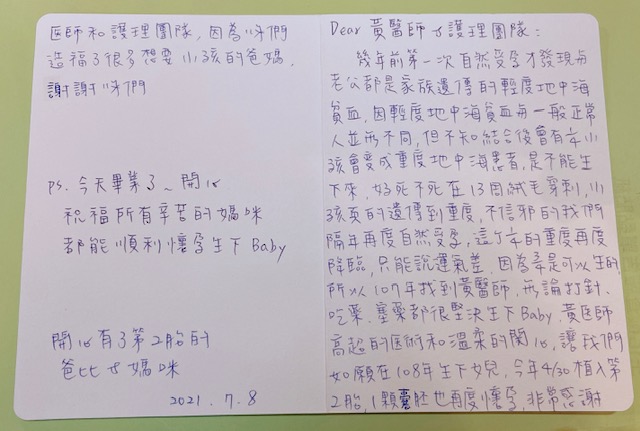 Dear 黃醫師 & 護理團隊:
幾年前第一次自然受孕才發現與
老公都是家族遺傳的輕度地中海
貧血,因輕度地中海貧血與一般正常
人並無不同,但不知結合後會有¼小
孩會變成重度地中海患者,是不能生
下來,好死不死在13周絨毛穿刺,小
孩真的遺傳到重度,不信邪的我們
隔年再度自然受孕,這了¼的重度再度
降臨,只能說運氣差,因為¾是可以生的,
所以107年找到黃醫師,無論打針、
吃藥、塞藥都很堅決生下Baby,黃醫師
高超的醫術和溫柔的關心,讓我們
如願在108年生下女兒,今年4/30植入第
2胎,1顆囊胚也再度懷孕,非常感謝
醫師和護理團隊,因為你們
造福了很多想要小孩的爸媽,
謝謝你們
ps. 今天畢業了~開心
祝福所有辛苦的媽咪
都能順利懷孕生下Baby
開心有了第2胎的
爸比 & 媽咪
2021. 7. 8